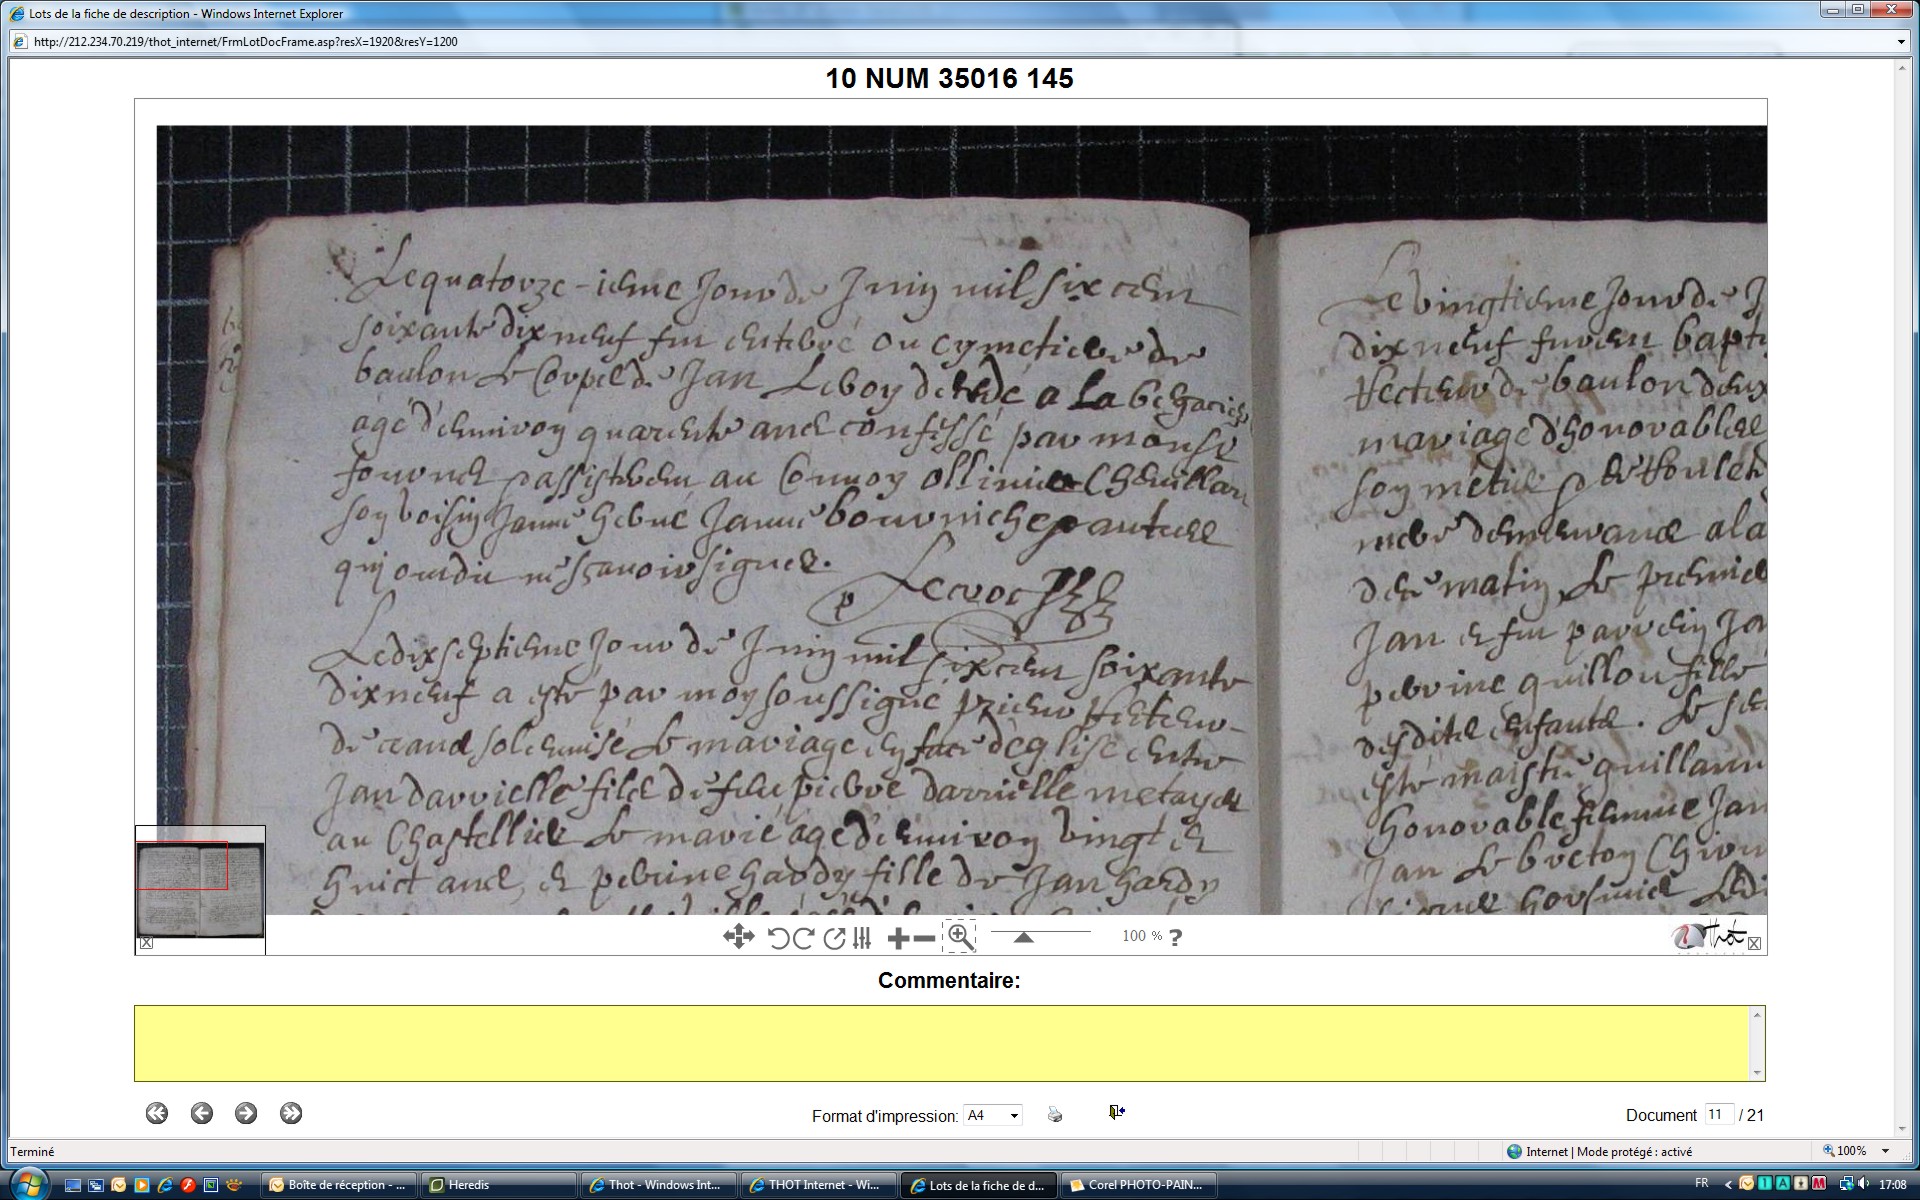 Lots de la fiche de description - Windows Internet Explorer
http://212.234.70.219/thot_internet/FrmLotDocFrame.asp?resX=1920&resY=1200
10 NUM 35016 145
Le quatorze-ieme Jour de Juin mil six cent
soixante dix neuf fut enterré au cymetiere de
baulon le Corps de Jan Leroy decedé a la
agé d'environ quarente ans confessé par mons
assisterent au Convoy ollivier Chevillar
son voisin Janne hervé Janne et autres
qui ont dit ne sçavoir signer.
Le dixseptieme Jour de Juin mil six cent soixante
dix neuf a esté par moy soussigné prieur Recteur
de ceans solemnisé le mariage en face d'eglise entre
Jan Darrielle fils de feu pierre Darrielle metayer
au Chastellier le marié agé d'environ vingt et
huict ans, et perrine hardy fille de Jan hardy
Le vingtieme Jour de J
dix neuf furent bapti
Recteur de baulon deux
mariage d'honorables
son metier
demeurans a la
de matin, le premier
Jan et fut parrein Ja
perrine quillou fille
desdits enfants. Le
esté maistre guillaum
honorable femme Jan
Jan le breton
100 % ?
Thot
Commentaire:
Format d'impression: A4
Document 11 / 21
Terminé
Internet | Mode protégé : activé
100%
Boîte de réception - ...
Heredis
Thot - Windows Int...
THOT Internet - Wi...
Lots de la fiche de d...
Corel PHOTO-PAIN...
FR
17:08